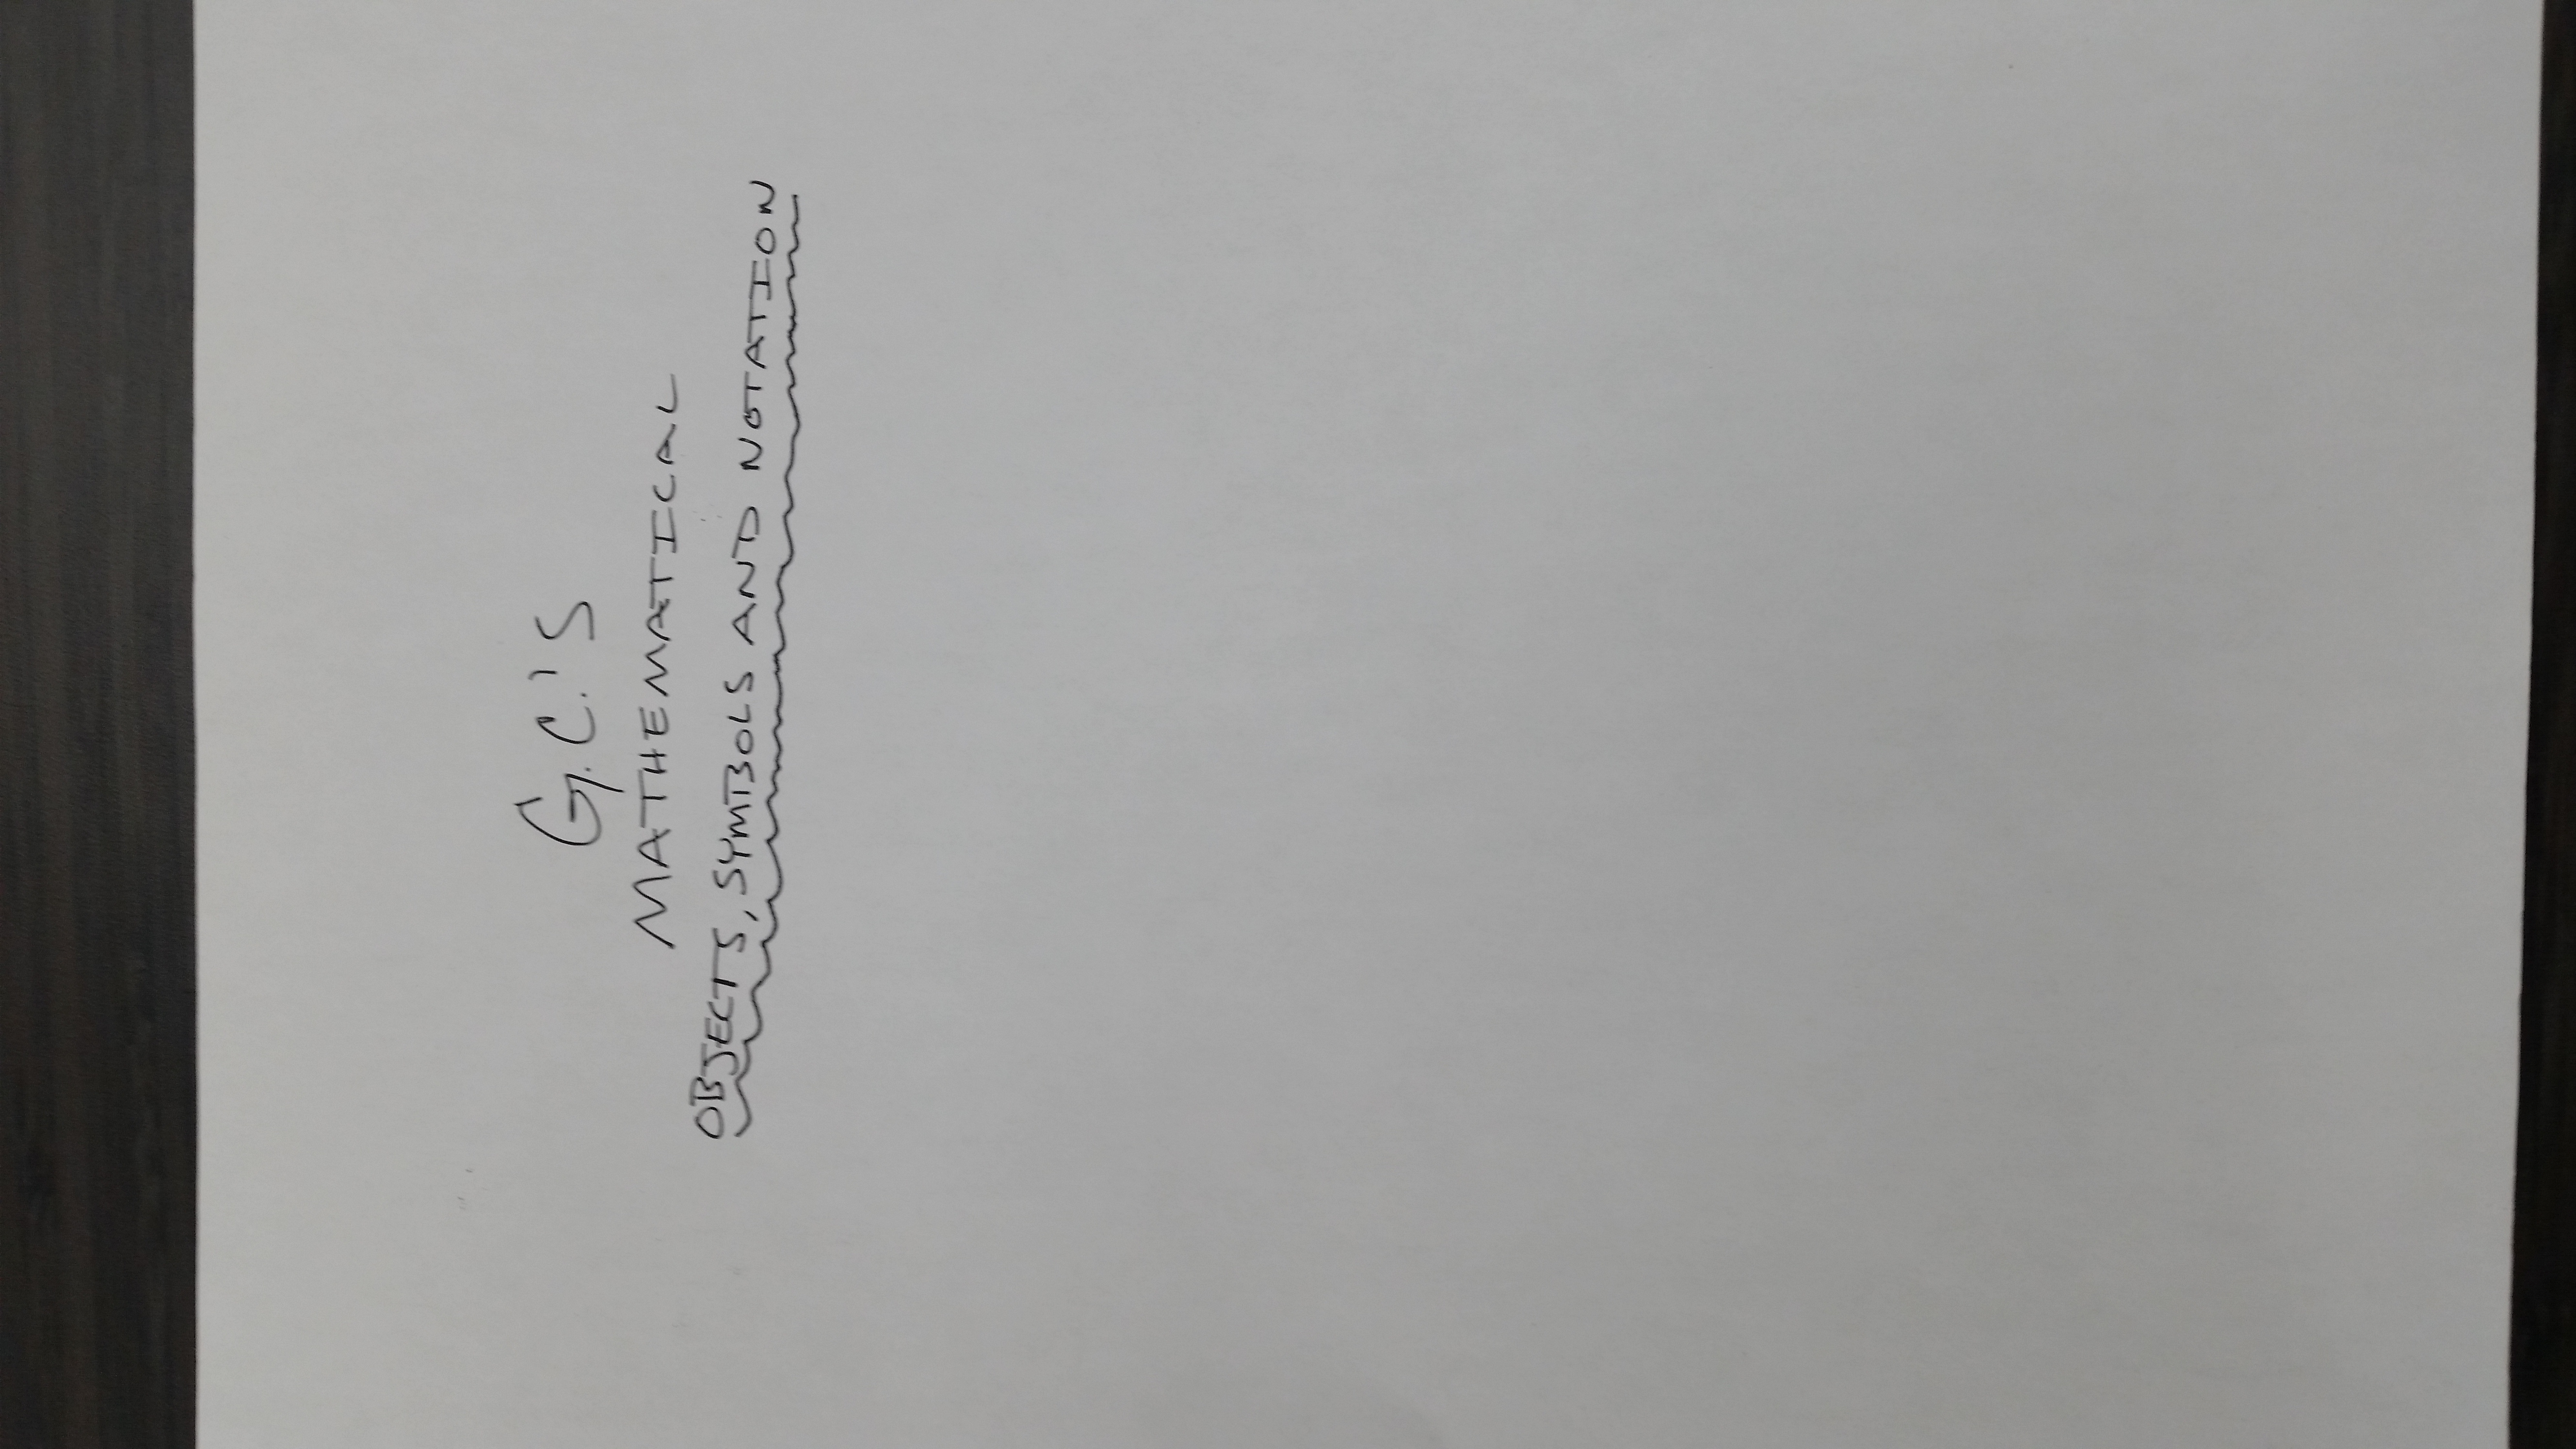 G.C.'S
MATHEMATICAL
OBJECTS, SYMBOLS AND NOTATION